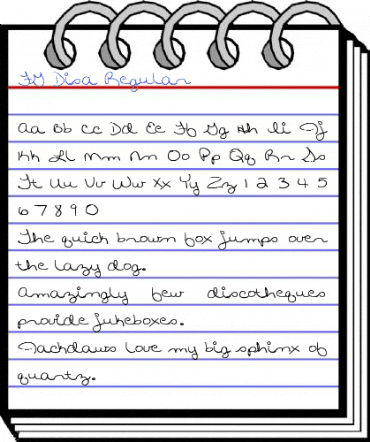 FG Disa Regular
Aa Bb Cc Dd Ee Ff Gg Hh Ii Jj
Kk Ll Mm Nn Oo Pp Qq Rr Ss
Tt Uu Vv Ww Xx Yy Zz 1 2 3 4 5
6 7 8 9 0
The quick brown fox jumps over
the lazy dog.
Amazingly few discotheques
provide jukeboxes.
Jackdaws love my big sphinx of
quartz.